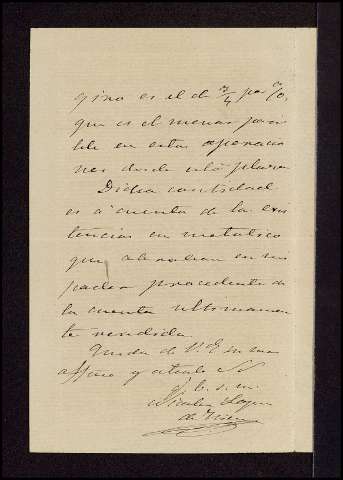 giro es el de 3/4 por %,
que es el menos posi
ble en estas operacio
nes desde esta plaza
Dicha cantidad
es á cuenta de las exis
tencias en metalico
que obraban en mi
poder procedente de
la cuenta ultimamen
te rendida.
Queda de V.E. su mas
affmo y atento S.S.
q. b. s. m.
Nicolas Lopez
de